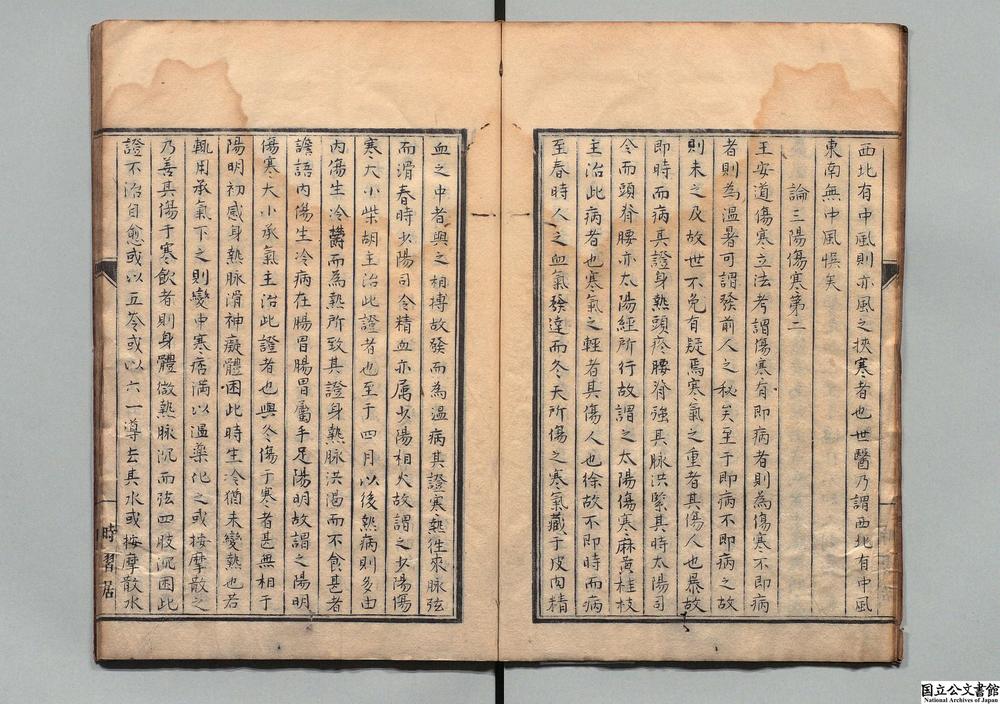 西北有中風則亦風之挾寒者也世醫乃謂西北有中風
東南無中風悞矣
論三陽傷寒第二
王安道傷寒立法考謂傷寒有即病者則為傷寒不即病
者則為温暑可謂發前人之秘矣至于即病不即病之故
則未之及故世不免有疑焉寒氣之重者其傷人也暴故
即時而病其證身熱頭疼腰脊強其脉洪緊其時太陽司
令而頭脊腰亦太陽經所行故謂之太陽傷寒麻黄桂枝
主治此病者也寒氣之輕者其傷人也徐故不即時而病
至春時人之血氣發達而冬天所傷之寒氣藏于皮肉精
血之中者與之相搏故發而為温病其證寒熱徃來脉弦
而滑春時少陽司令精血亦属少陽相火故謂之少陽傷
寒大小柴胡主治此證者也至于四月以後熱病則多由
内傷生冷欝而為熱所致其證身熱脉洪渴而不食甚者
譫語内傷生冷病在腸胃腸胃屬手足陽明故謂之陽明
傷寒大小承氣主治此證者也與冬傷于寒者甚無相于
陽明初感身熱脉滑神癡體困此時生冷猶未變熱也若
輒用承氣下之則變中寒痞滿以温藥化之或按摩散之
乃善其傷于寒飲者則身體微熱脉沉而弦四肢沉困此
證不治自愈或以五苓或以六一導去其水或按摩散水
時習居
国立公文書館
National Archives of Japan